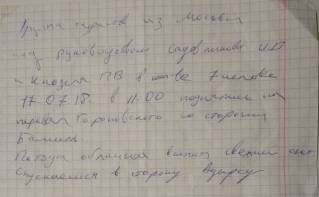 Группа туристов из Москвы
под руководством Садовникова И.П.
и Князева П.В в кол-ве 7 человек
17.07.18. в 11:00 поднялись на
перевал со стороны
Погода облачная выпал свежий снег
Спускаемся в сторону